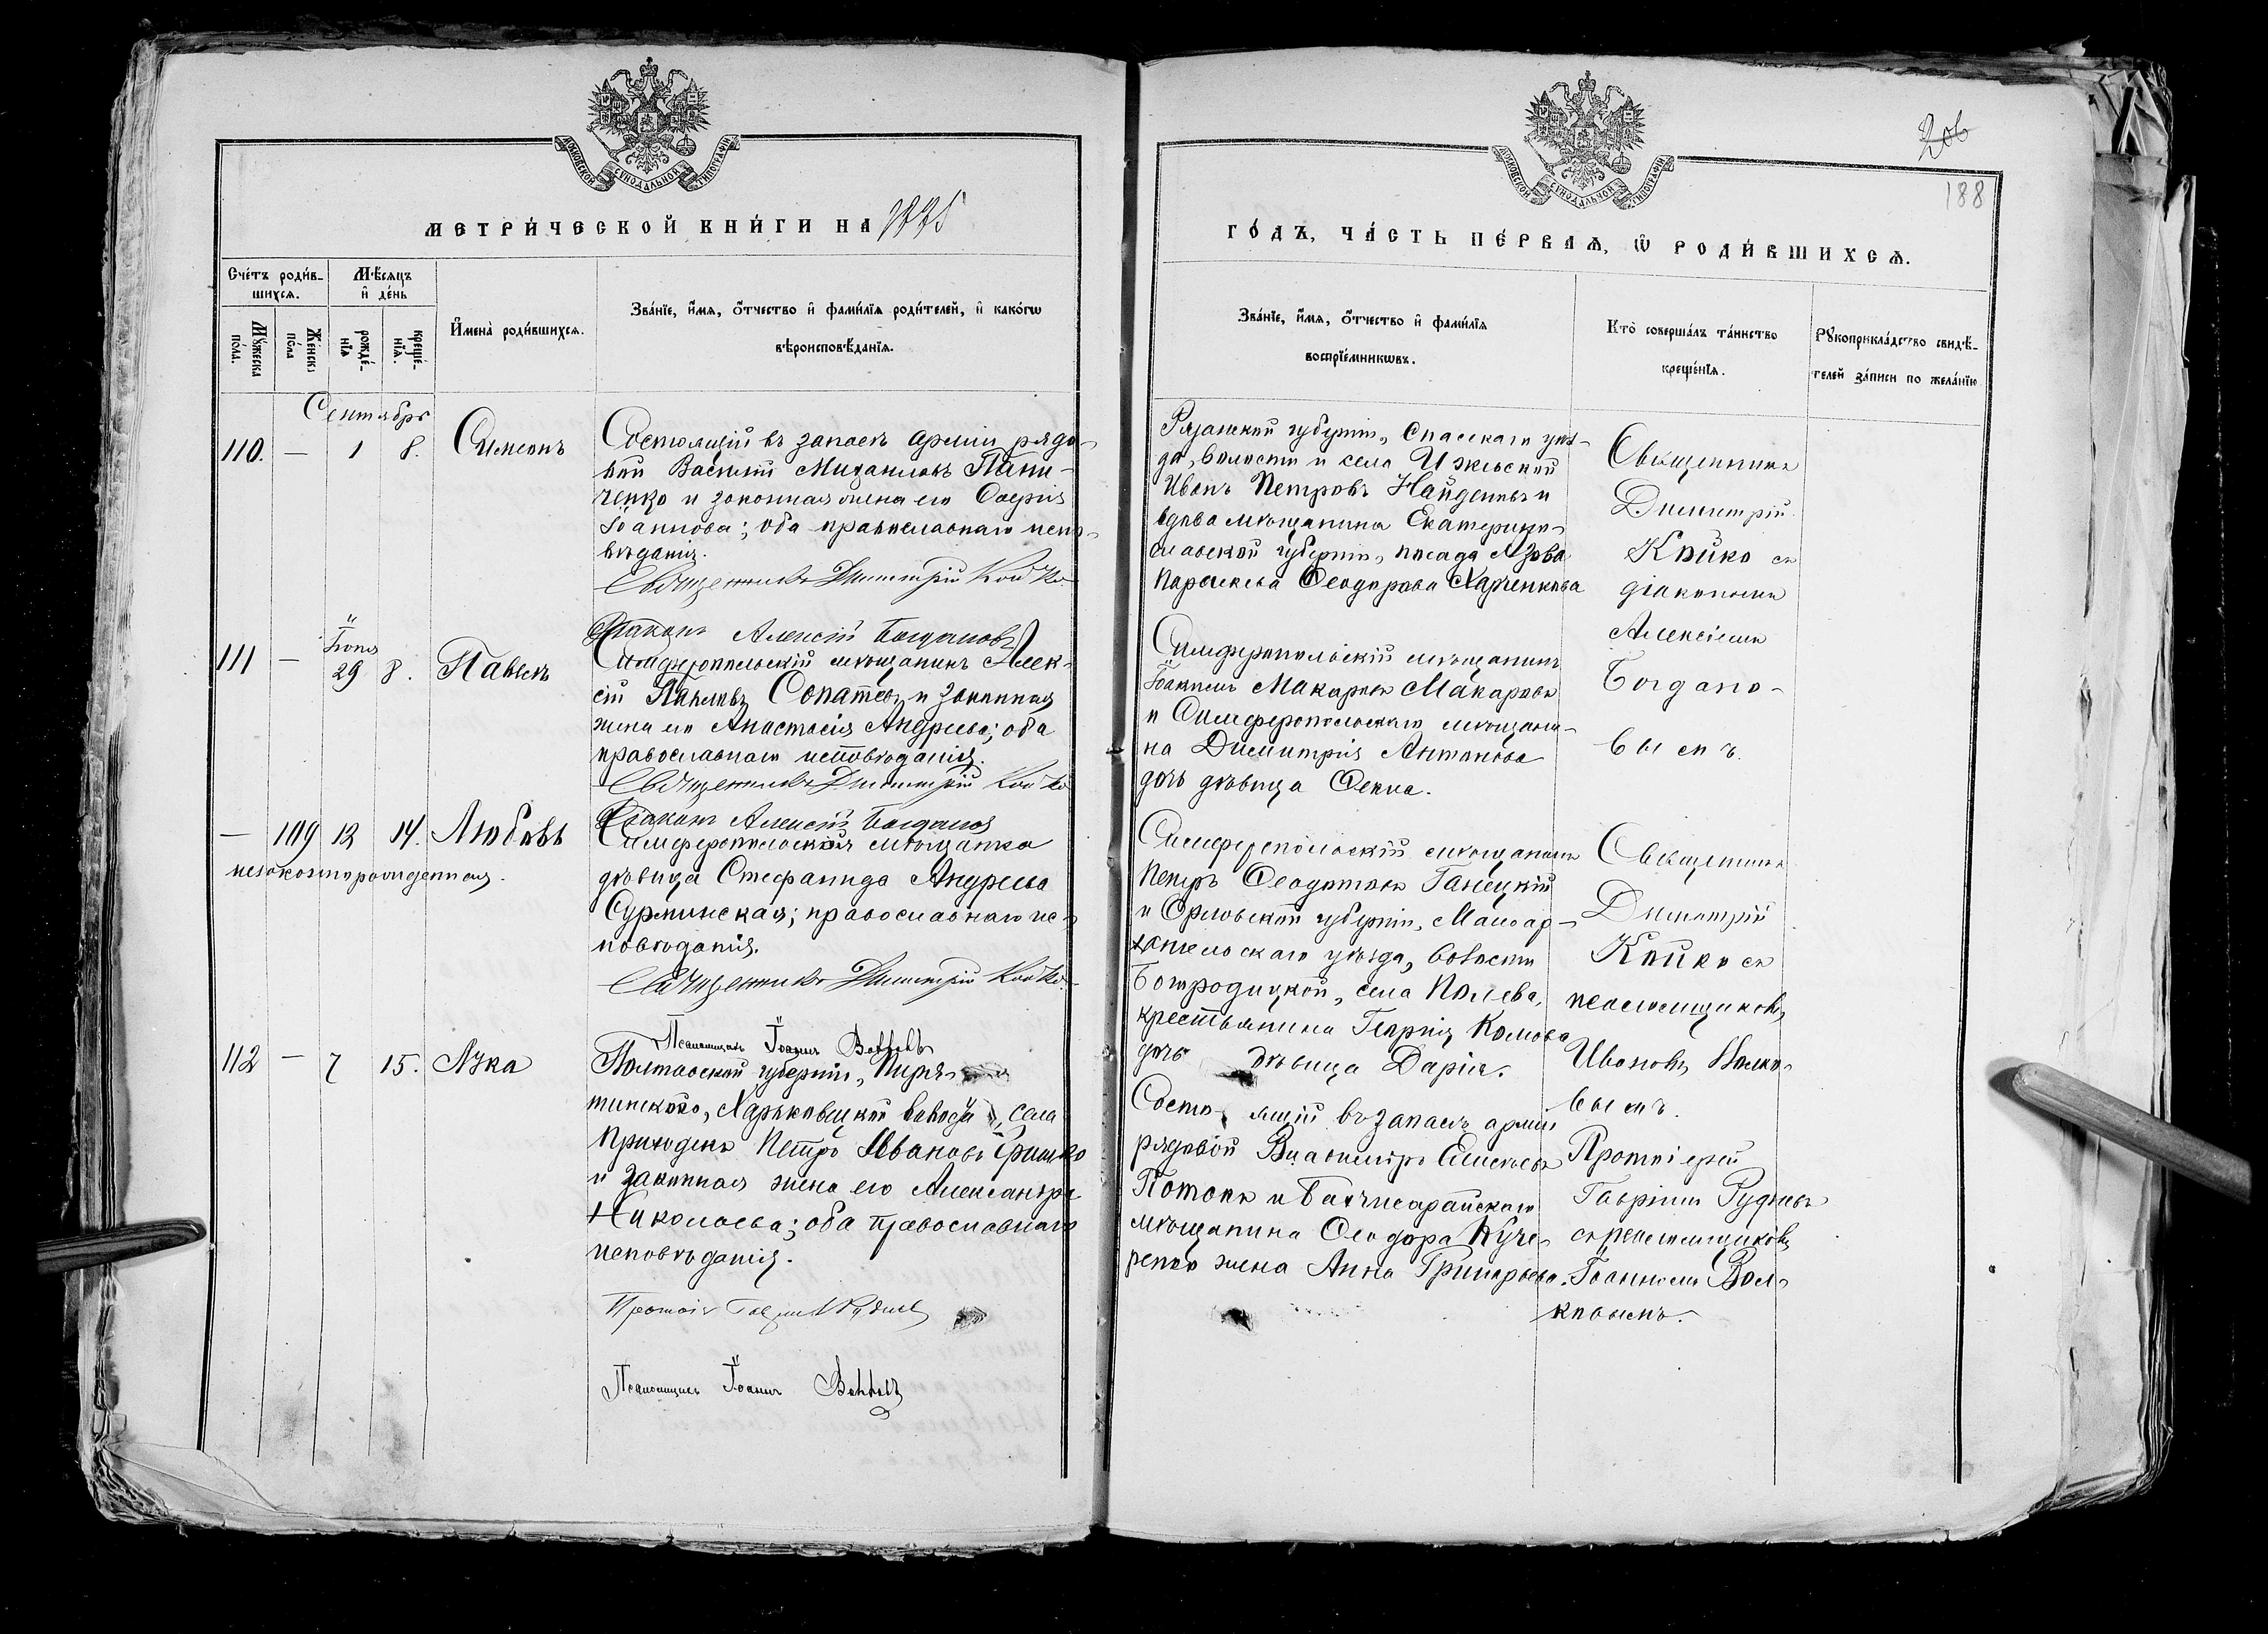 МОСКОВСКОЙ СѴНОДАЛЬНОЙ ТИПОГРАФІИ
МЕТРИ́ЧЕСКОЙ КНИ́ГИ НА
Сче́тъ роди́в-
шихся.
Мѣ́сяцъ
и҆ де́нь
Мꙋ́жеска
по́ла.
Же́нска
по́ла
рожде́-
нїѧ
креще́-
нїѧ.
И҆мена̀ роди́вшихся.
Зва́нїе, и҆́мѧ, ѻ҆́тчество и҆ фами́лїѧ роди́телей, и҆ како́гѡ
вѣроисповѣ́данїѧ.
Сентябрь
110. — 1 8. Симеонъ
Состоящій въ запасѣ арміи рядо-
вой Василій Михаиловъ Пани-
ченко и законная жена его Софія
Іоаннова; оба православнаго испо-
вѣданія.
Священникъ Димитрій Койко
Діаконъ Алексій Богдановъ
111 — Іюня 29 8. Павелъ
Симферопольскій мѣщанинъ Алек-
сій Павловъ Сопатовъ и законная
жена его Анастасія Андреева; оба
православнаго исповѣданія.
Священникъ Димитрій Койко
Діаконъ Алексій Богдановъ
— 109 12 14. Любовь
незаконнорожденная.
Симферопольская мѣщанка
дѣвица Стефанида Андреева
Сурминская; православнаго ис-
повѣданія.
Священникъ Димитрій Койко
Псаломщикъ Іоаннъ
112 — 7 15. Лука
Полтавской губерніи, Пиря-
тинскаго, Харьковецкой волости, села
Приходекъ Петръ Ивановъ Гришко
и законная жена его Александра
Николаева; оба православнаго
исповѣданія.
Псаломщикъ Іоаннъ
206
188
МОСКОВСКОЙ СѴНОДАЛЬНОЙ ТИПОГРАФІИ
ГО́ДЪ, ЧА́СТЬ ПЕ́РВАѦ, Ѡ҆ РОДИ́ВШИХСѦ.
Зва́нїе, и҆́мѧ, ѻ҆́тчество и҆ фами́лїѧ
воспрїе́мникѡвъ.
Кто̀ соверша́лъ та́инство
креще́нїѧ.
Рꙋкоприкла́дство свидѣ́-
телей за́писи по жела́нїю
Рязанской губерніи, Спасскаго уѣз-
да, волости и села Ижевской
Иванъ Петровъ Найденовъ и
вдова мѣщанина Екатерино-
славской губерніи, посада Азова
Параскева Ѳеодорова Харченкова
Священникъ
Димитрій
Койко съ
діакономъ
Алексіемъ
Богдано-
вымъ.
Симферопольскій мѣщанинъ
Іоакимъ Макаровъ Макаровъ
и Симферопольскаго мѣщани-
на Димитрія Антонова
дочь дѣвица Ѳекла.
Симферопольскій мѣщанинъ
Петръ Ѳеодотовъ Ганецкій
и Орловской губерніи, Малоар-
хангельскаго уѣзда, волости
Богородицкой, села Полева,
крестьянина Георгія Комова
дочь дѣвица Дарія.
Священникъ
Димитрій
Койко съ
псаломщикомъ
Иваномъ Волко-
вымъ.
Состоящій въ запасѣ арміи
рядовой Владиміръ Елисѣевъ
Потокъ и Бахчисарайскаго
мѣщанина Ѳеодора Куче-
ренко жена Анна Григорьева.
Протоіерей
Гавріилъ Рудневъ
съ псаломщикомъ
Іоанномъ Вол-
ковымъ.